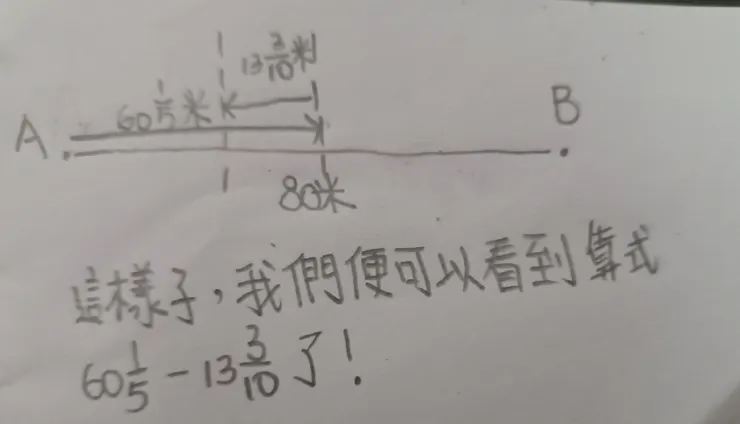 13 3/10 米
60 1/5 米
A
B
80米
這樣子,我們便可以看到算式
60 1/5 - 13 3/10 了!